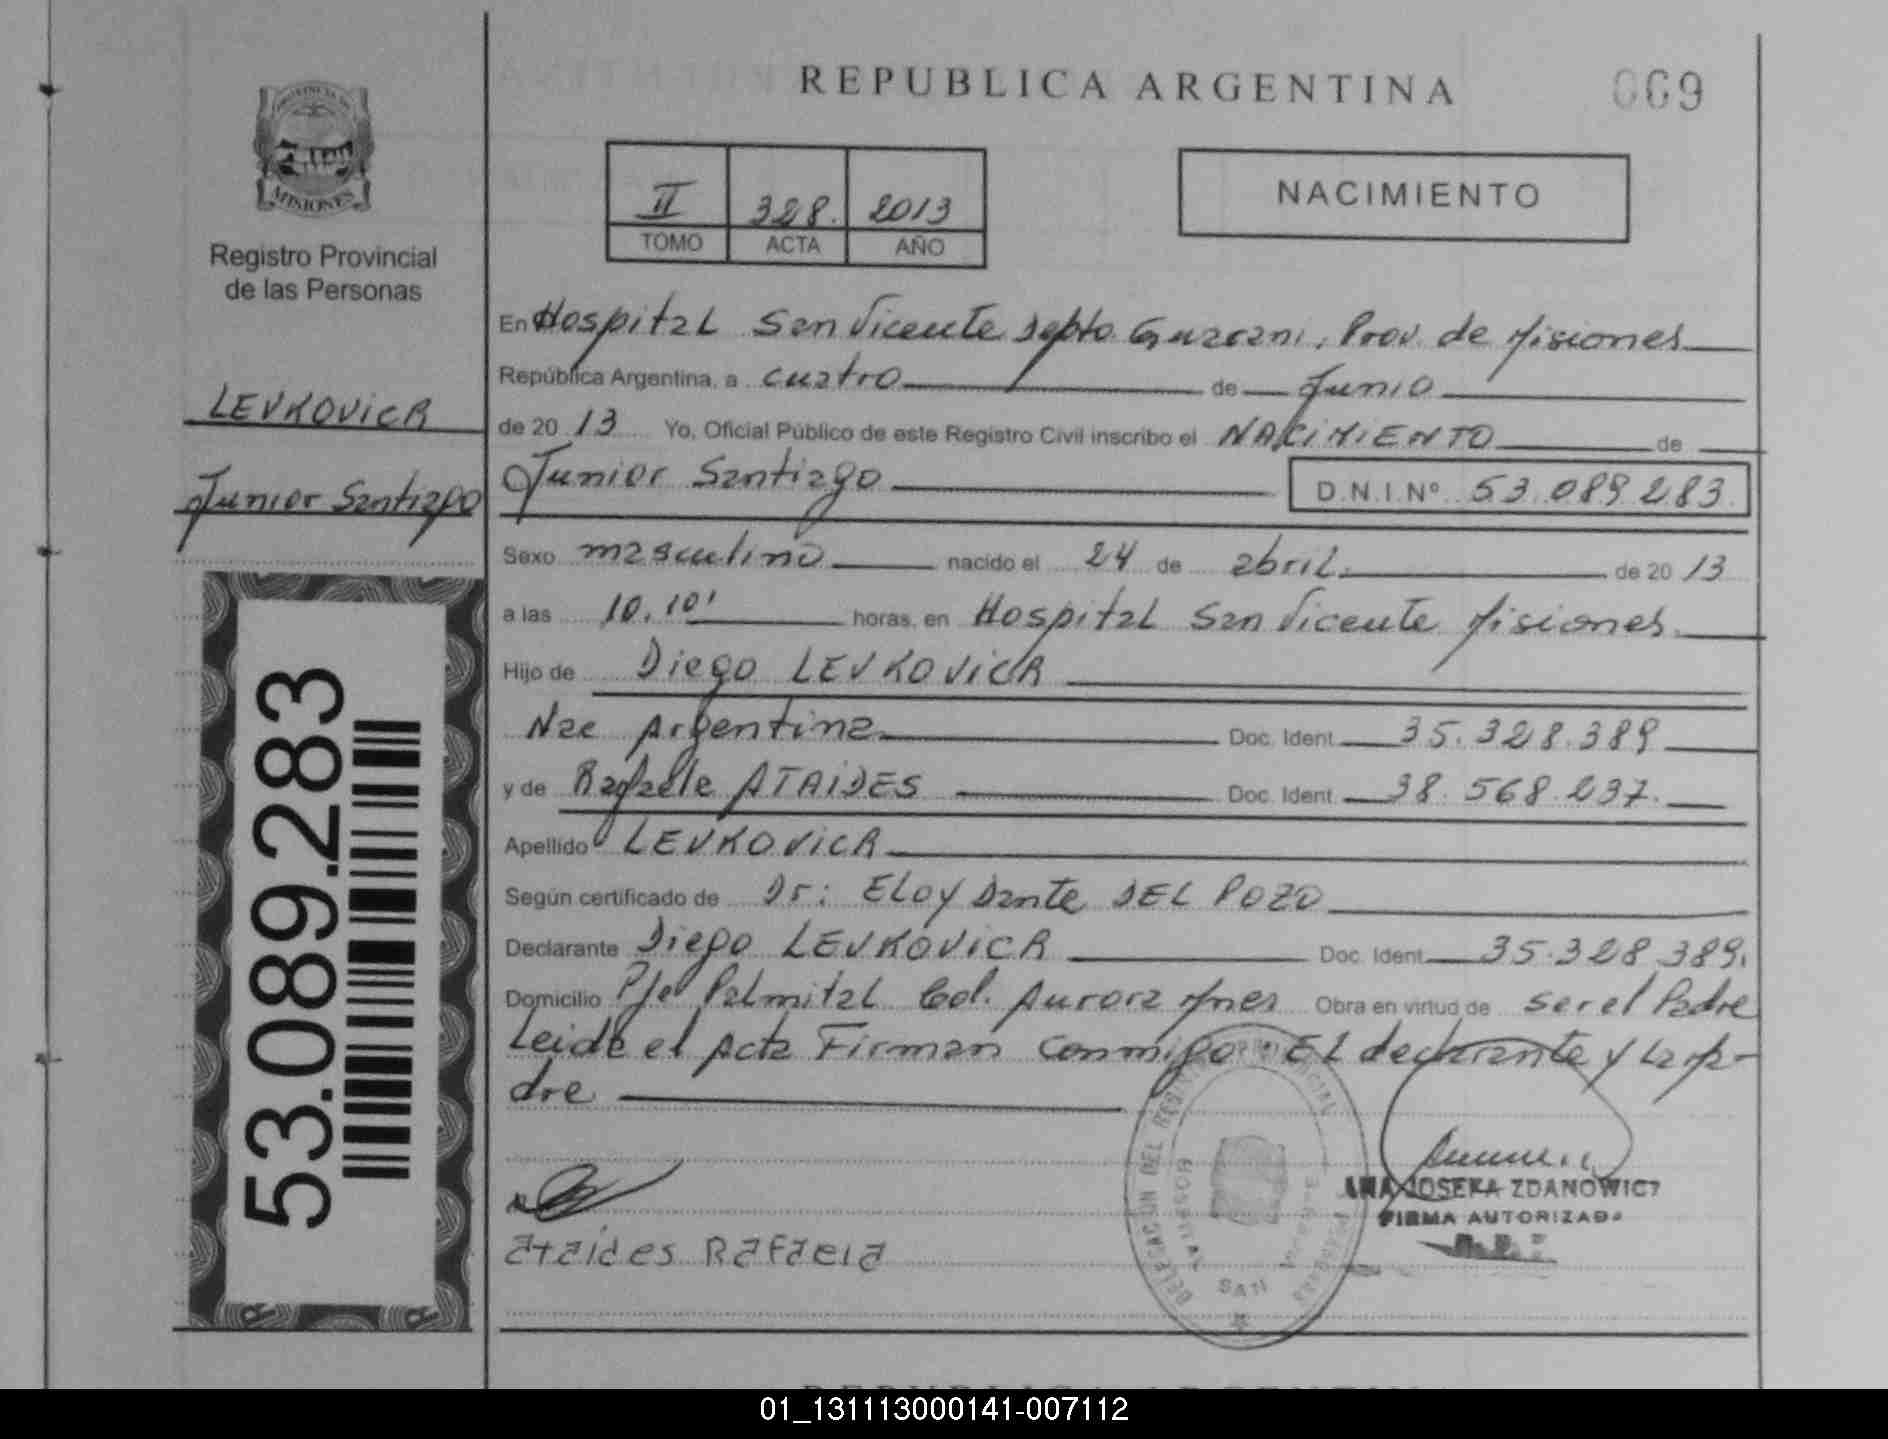 REPUBLICA ARGENTINA
069
PROVINCIA DE
MISIONES
Registro Provincial
de las Personas
II 328. 2013
TOMO ACTA AÑO
NACIMIENTO
LEVKOVICH
Junior Santiago
53.089.283
En Hospital San Vicente Depto. Guarani, Prov. de Misiones
República Argentina, a cuatro de Junio
de 20 13 Yo, Oficial Público de este Registro Civil inscribo el NACIMIENTO de
Junior Santiago D.N.I.Nº 53.089.283
Sexo masculino nacido el 24 de abril de 20 13
a las 10.10' horas, en Hospital San Vicente Misiones.
Hijo de Diego LEVKOVICH
Nac Argentina Doc. Ident. 35.328.389
y de Rafaela ATAIDES Doc. Ident. 38.568.237.
Apellido LEVKOVICH
Según certificado de Dr: ELOY Dante DEL POZO
Declarante Diego LEVKOVICH Doc. Ident. 35.328.389.
Domicilio Pje Palmital Col. Aurora Mnes Obra en virtud de ser el Padre
Leida el Acta Firman conmigo. EL declarante y La ma-
dre
DELEGACION DEL REGISTRO PROVINCIAL
SAN VICENTE
ataides Rafaela
ANA JOSEFA ZDANOWICZ
FIRMA AUTORIZADA
01_131113000141-007112